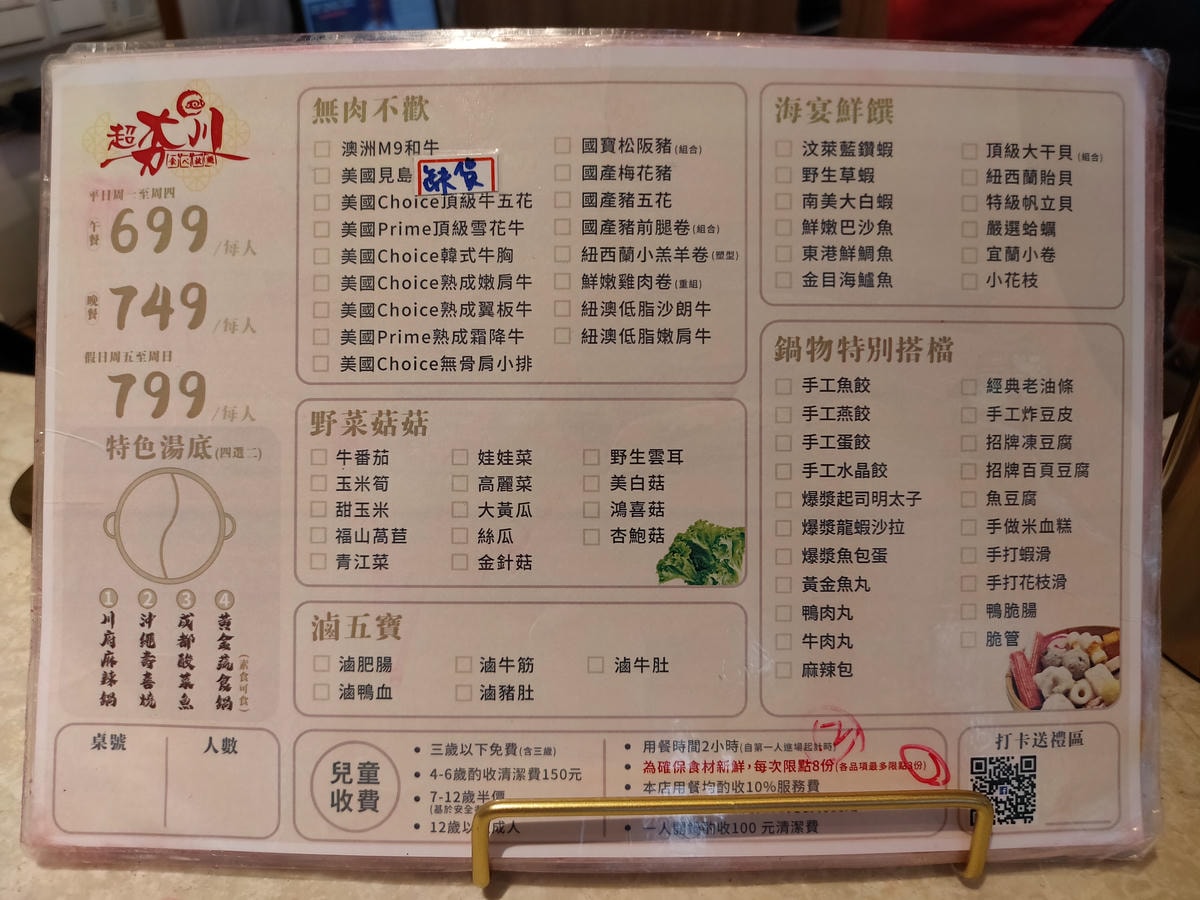 超夯川
平日周一至周四
午餐 699/每人
晚餐 749/每人
假日周五至周日
799/每人
特色湯底(四選二)
1 川府麻辣鍋
2 沖繩壽喜燒
3 成都酸菜魚
4 黃金蔬食鍋(素食可食)
桌號
人數
無肉不歡
澳洲M9和牛
美國見島
缺貨
美國Choice頂級牛五花
美國Prime頂級雪花牛
美國Choice韓式牛胸
美國Choice熟成嫩肩牛
美國Choice熟成翼板牛
美國Prime熟成霜降牛
美國Choice無骨肩小排
國寶松阪豬(組合)
國產梅花豬
國產豬五花
國產豬前腿卷(組合)
紐西蘭小羔羊卷(塑型)
鮮嫩雞肉卷(重組)
紐澳低脂沙朗牛
紐澳低脂嫩肩牛
野菜菇菇
牛番茄
玉米筍
甜玉米
福山萵苣
青江菜
娃娃菜
高麗菜
大黃瓜
絲瓜
金針菇
野生雲耳
美白菇
鴻喜菇
杏鮑菇
滷五寶
滷肥腸
滷鴨血
滷牛筋
滷豬肚
滷牛肚
海宴鮮饌
汶萊藍鑽蝦
野生草蝦
南美大白蝦
鮮嫩巴沙魚
東港鮮鯛魚
金目海鱸魚
頂級大干貝(組合)
紐西蘭貽貝
特級帆立貝
嚴選蛤蠣
宜蘭小卷
小花枝
鍋物特別搭檔
手工魚餃
手工燕餃
手工蛋餃
手工水晶餃
爆漿起司明太子
爆漿龍蝦沙拉
爆漿魚包蛋
黃金魚丸
鴨肉丸
牛肉丸
麻辣包
經典老油條
手工炸豆皮
招牌凍豆腐
招牌百頁豆腐
魚豆腐
手做米血糕
手打蝦滑
手打花枝滑
鴨脆腸
脆管
兒童收費
三歲以下免費(含三歲)
4-6歲酌收清潔費150元
7-12歲半價
(基於安全
12歲以 成人
用餐時間2小時(自第一人進場起計時)
為確保食材新鮮,每次限點8份(各品項最多限點3份)
本店用餐均酌收10%服務費
一人開鍋酌收100 元清潔費
打卡送禮區